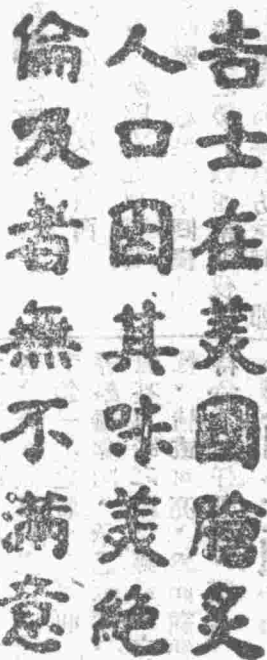 吉士在美國膾炙
人口因其味美絕
倫及者無不滿意